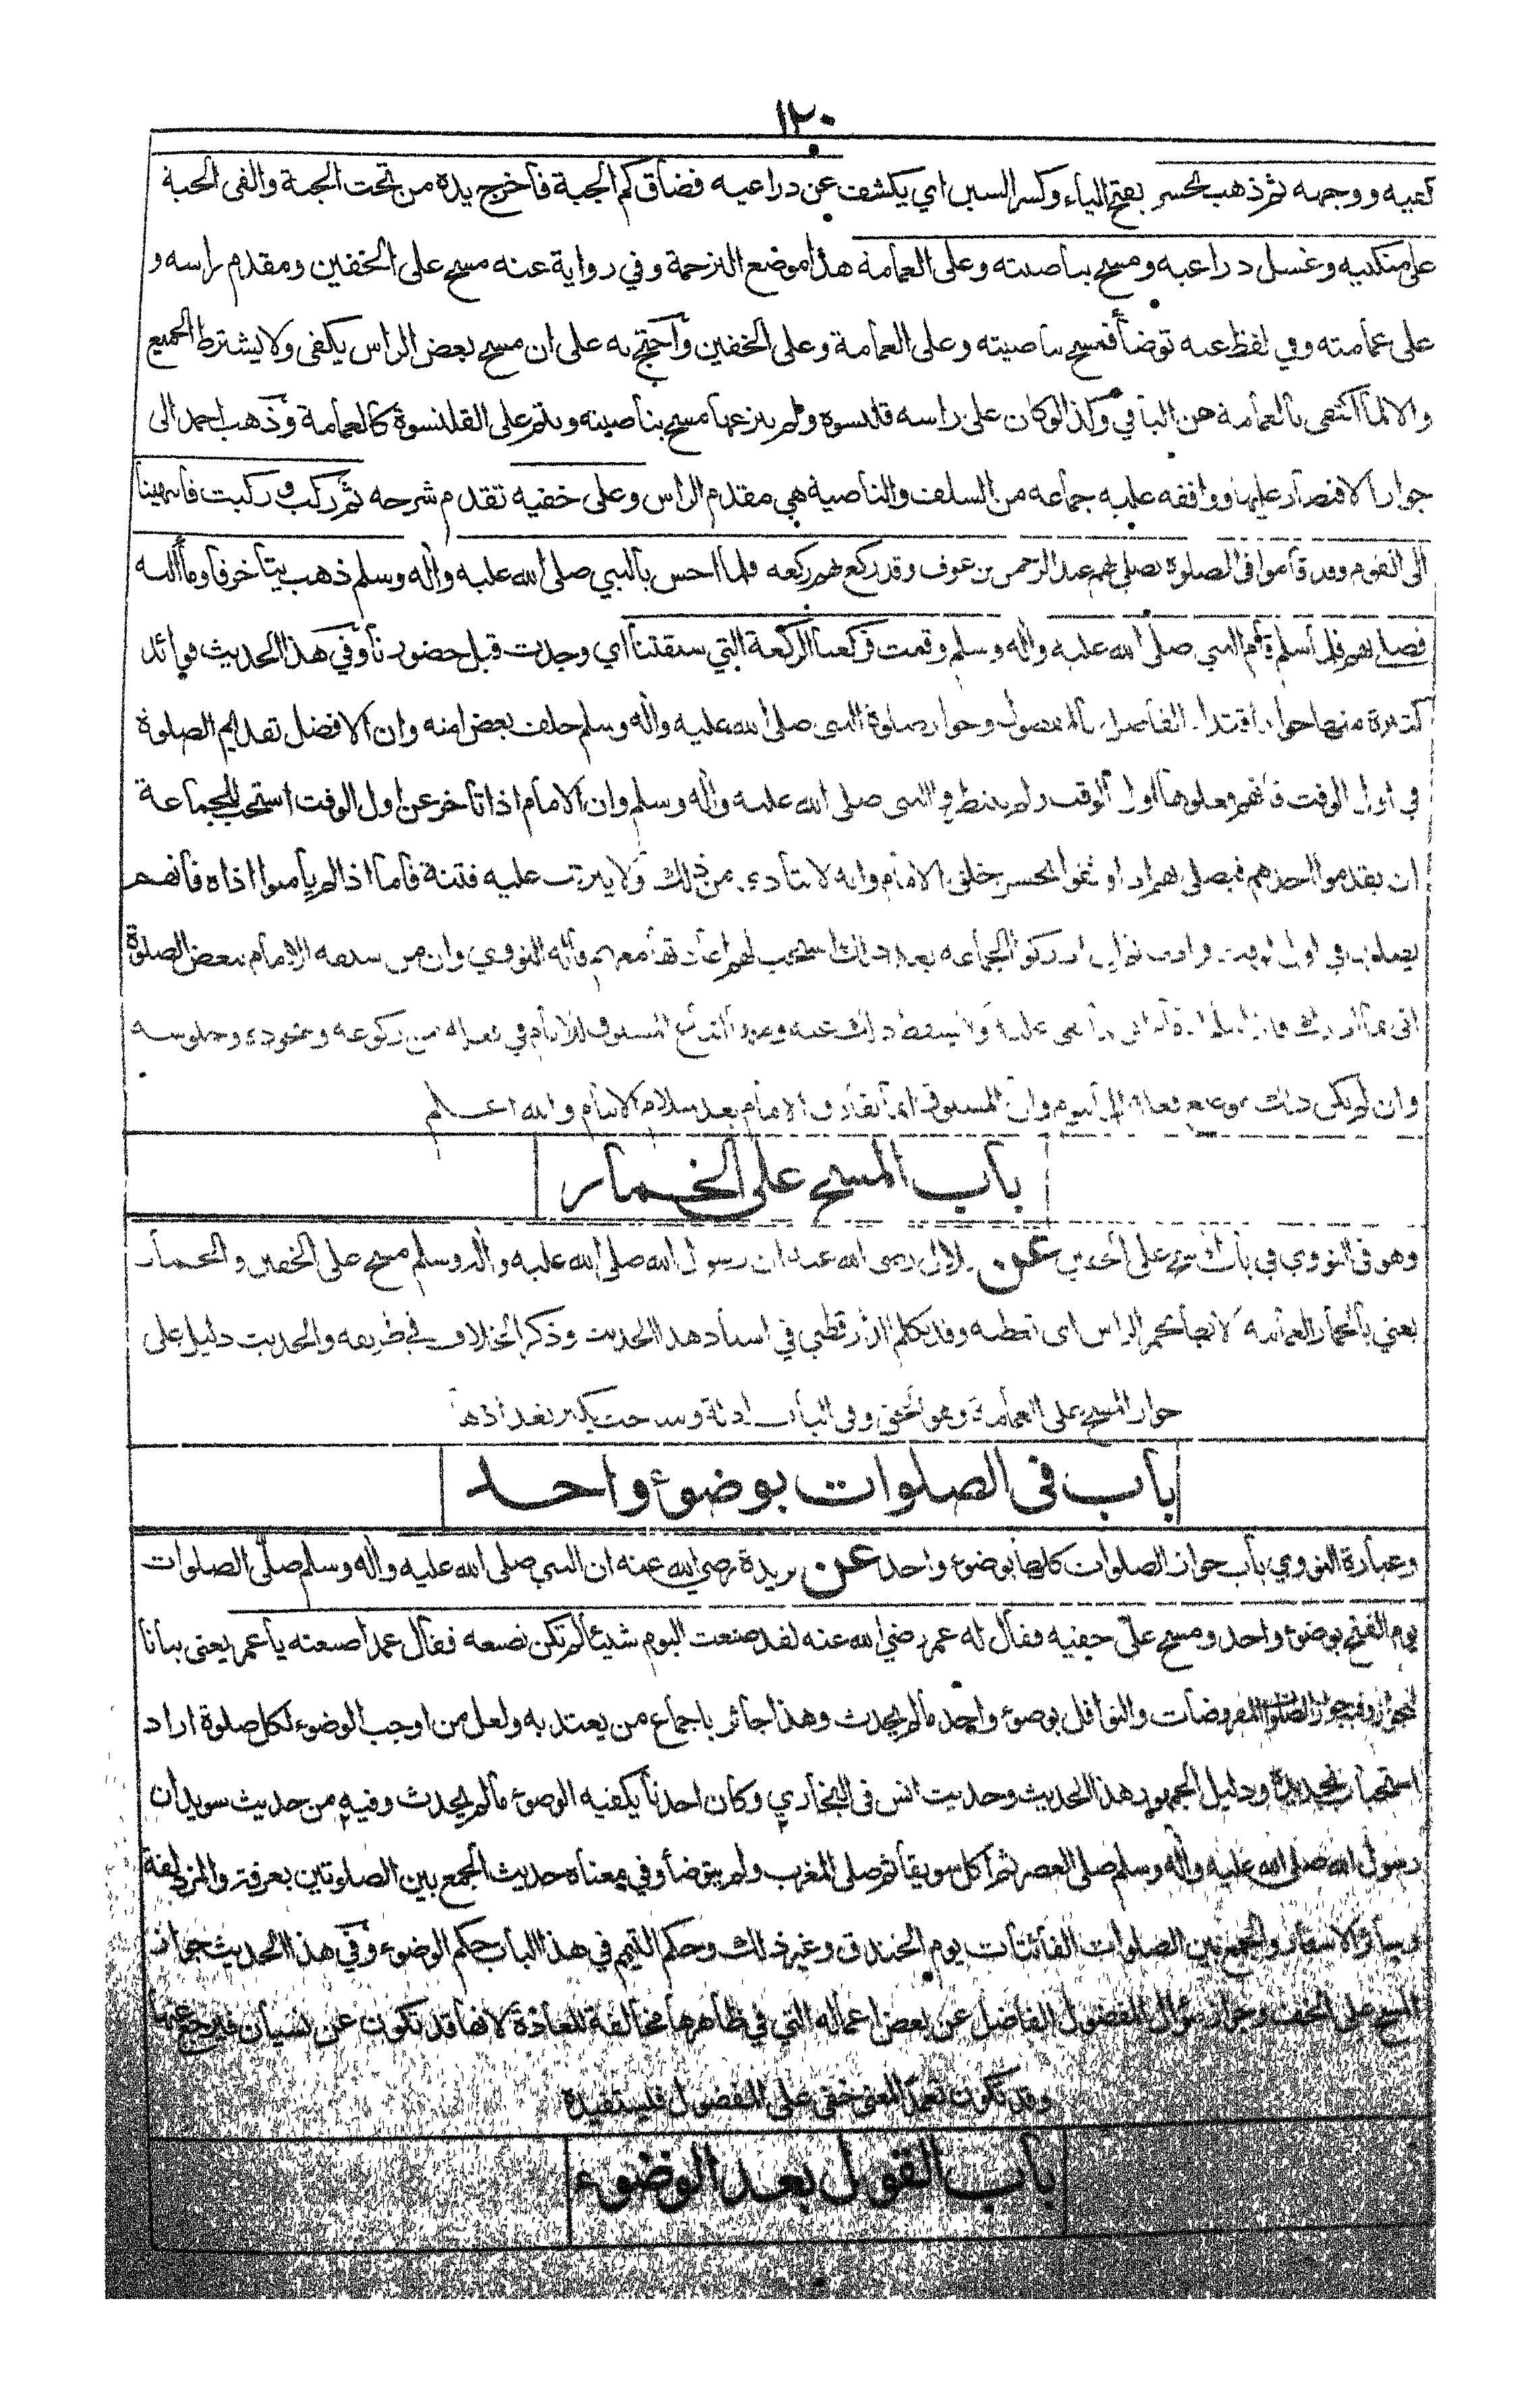 ١٢٠
كفيه ووجهه ثم ذهب يحسر بفتح الياء وكسر السين اي يكشف عن ذراعيه فضاق كم الجبة فاخرج يده من تحت الجبة والقى الجبة
على منكبيه وغسل ذراعيه ومسح بناصيته وعلى العمامة هذا موضع الترجمة وفي رواية عنه مسح على الخفين ومقدم راسه و
على عمامته وفي لفظ عنه توضأ فمسح بناصيته وعلى العمامة وعلى الخفين واحتج به على ان مسح بعض الراس يكفى ولا يشترط الجميع
والا لما اكتفى بالعمامة عن الباقي وكذا لو كان على راسه قلنسوة ولم ينزعها مسح بناصيته ويتم على القلنسوة كالعمامة وذهب احمد الى
جواز الاقتصار عليها ووافقه عليه جماعه من السلف والناصية هي مقدم الراس وعلى خفيه تقدم شرحه ثم ركب وركبت فانتهينا
الى القوم وقد قاموا فى الصلوة يصلي بهم عبد الرحمن بن عوف وقد ركع بهم ركعه فلما احس بالنبي صلى الله عليه واله وسلم ذهب يتاخر فاومأ اليه
فصلى بهم فلما سلم قام النبي صلى الله عليه واله وسلم وقمت فركعنا الركعة التي سبقتنا اي وجدت قبل حضورنا وفي هذا الحديث فوائد
كثيرة منها جواز اقتداء الفاضل بالمفضول وجواز صلوة النبي صلى الله عليه واله وسلم خلف بعض امته وان الافضل تقديم الصلوة
في اول الوقت فانهم فعلوها اول الوقت ولم ينتظروا النبي صلى الله عليه واله وسلم وان الامام اذا تاخر عن اول الوقت استحب للجماعة
ان يقدموا احدهم فيصلي بهم اذا وثقوا بحسن خلق الامام وانه لا يتاذى من ذلك ولا يترتب عليه فتنة فاما اذا لم يامنوا اذاه فانهم
يصلون في اول الوقت فرادى ثم ان ادركوا الجماعه بعد ذلك استحب لهم اعادتها معهم قاله النووي وان من سبقه الامام ببعض الصلوة
اتى بما ادرك فاذا سلم الامام اتى بما بقى عليه ولا يسقط ذلك عنه وفيه اتباع المسبوق للامام في فعله من ركوعه وسجوده وجلوسه
وان لم يكن ذلك موضع فعله للماموم وان المسبوق انما يفارق الامام بعد سلام الامام والله اعلم
باب المسح على الخمار
وهو فى النووي في باب المسح على الخفين عن بلال رضى الله عنه ان رسول الله صلى الله عليه واله وسلم مسح على الخفين والخمار
يعني بالخمار العمامة لانها تخمر الراس اى تغطيه وقد تكلم الدارقطني في اسناد هذا الحديث وذكر الخلاف في طريقه والحديث دليل على
جواز المسح على العمامة وهو الحق وفى الباب ادلة
باب فى الصلوات بوضوء واحد
وعبارة النووي باب جواز الصلوات كلها بوضوء واحد عن بريدة رضي الله عنه ان النبي صلى الله عليه واله وسلم صلّى الصلوات
يوم الفتح بوضوء واحد ومسح على خفيه فقال له عمر رضي الله عنه لقد صنعت اليوم شيئا لم تكن تصنعه فقال عمدا صنعته يا عمر يعنى بيانا
للجواز وفيه جواز الصلوات المفروضات والنوافل بوضوء واحد مالم يحدث وهذا جائز باجماع من يعتد به ولعل من اوجب الوضوء لكل صلوة اراد
استحباب تجديدة ودليل الجمهور هذا الحديث وحديث انس فى البخاري وكان احدنا يكفيه الوضوء مالم يحدث وفيه من حديث سويد ان
رسول الله صلى الله عليه واله وسلم صلى العصر ثم اكل سويقا ثم صلى المغرب ولم يتوضأ وفي معناه حديث الجمع بين الصلوتين بعرفة والمزدلفة
وسائر الاسفار والجمع بين الصلوات الفائتات يوم الخندق وغير ذلك وحكم التيمم في هذا الباب حكم الوضوء وفي هذا الحديث جواز
المسح على الخف وجواز سؤال المفضول الفاضل عن بعض اعماله التي في ظاهرها مخالفة للعادة لانها قد تكون عن نسيان فيرجع عنها
وقد تكون تعمدا لمعنى خفى على المفضول فيستفيده
باب القول بعد الوضوء